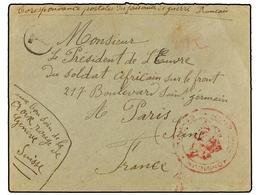 Correspondance postale des prisonniers de guerre Francais
Monsieur
Le Président de L'Œuvre
du Soldat Africain sur le front
217 Boulevard Saint germain
à Paris
Seine
France
aux bon soin de la
Croix rouge de
Genève
Suisse